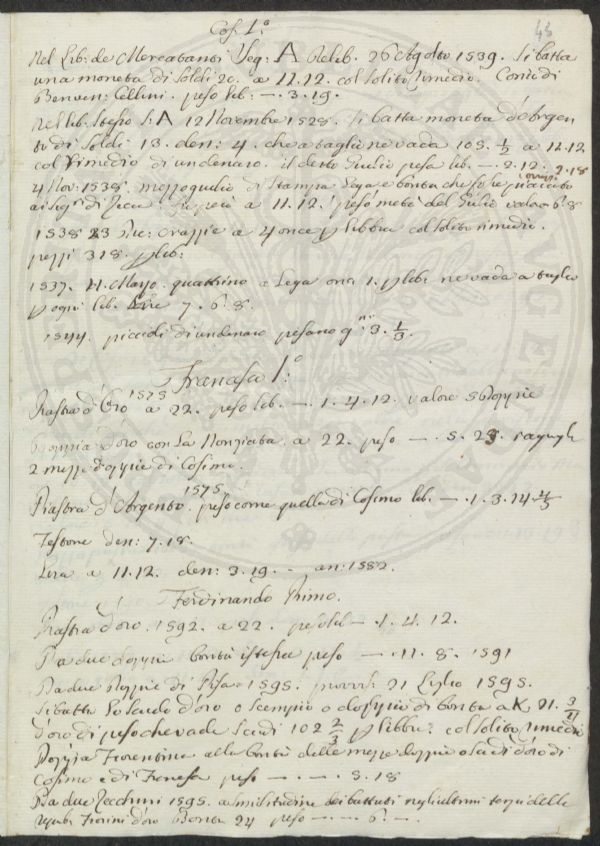 Cos. I.º 43
Nel Lib: de Mercatanti Seg: A Delib. 26 Agosto 1539. Si batta
una moneta di Soldi 20. a 11.12. col solito rimedio. Conii di
Benven: Cellini. peso lib: —. 3. 19.
Nel lib: Stesso S: A 12 Novembre 1528. Si batta moneta d'Argen
to di Soldi 13. den: 4. che a taglio ne vada 105. 1/5 a 11.12
col rimedio di un denaro. il detto Giulio pesa lib. —. 2. 12.
2.18
4 Nov: 1538. mezzo giulio di Stampa Lega e bontà che
ai Sig.ri di Zecca a 11.12. peso metà del Giulio valore 6. 8
1538 23 crazzie a 4 once p libbra col solito rimedio.
pezzi 318. p lib:
1537. 4. Mayo. quattrino a Lega once 1. p lib: ne vada a taglio
p ogni lib. Lire 7. 6. 8.
1544. piccioli di un denaro pesano g.ni 3. 1/3.
Francesco I.º
Piastra d'Oro 1575 a 22. peso lib. —. 1. 4. 12. valore 5 doppie
Doppia d'oro con La Nonziata. a 22. peso —. 5. 23. ragugli
2 mezze doppie di Cosimo.
Piastra d'Argento. 1575. peso come quella di Cosimo lib. —. 1. 3. 14.
Testone den: 7. 18.
Lira a 11.12. den: 3. 19. — an: 1582.
Ferdinando Primo.
Piastra d'oro. 1592. a 22. peso lib —. 1. 4. 12.
Da due doppie bontà istessa peso —. 11. 8. 1591
Da due Doppie di Pisa 1595. 21 Luglio 1595.
Si batta Lo Scudo d'oro o scempio o doppio di bontà a K. 21.
d'oro di peso che vada Scudi 102 2/3 p libbra: col solito rimedio
Doppia Fiorentina alla bontà delle mezze doppie o scudi d'oro di
Cosimo e di peso —. —. 3. 18
Da due Zecchini 1595. a similitudine dei battuti negli ultimi tempi della
Repub: Fiorini d'oro Bontà 24 peso —. —. 6. —.